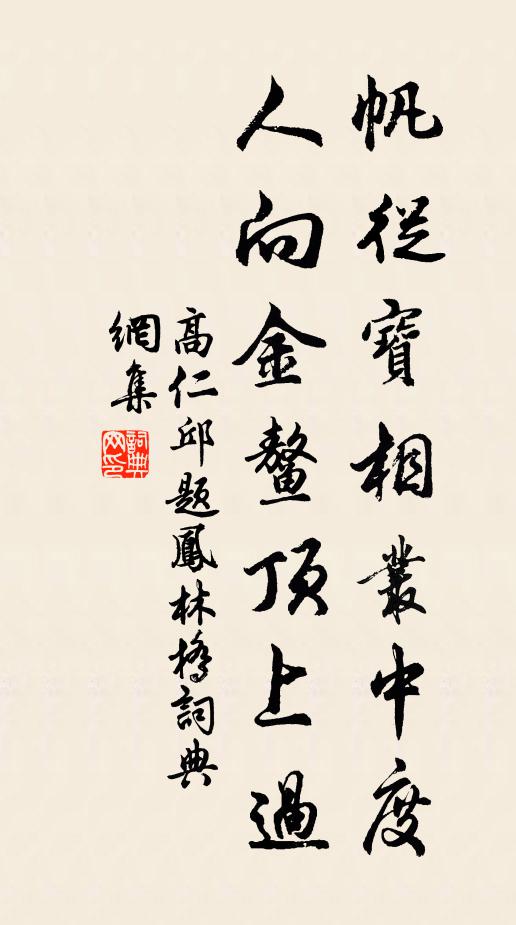 帆從寶相叢中度
人向金鼇頂上過
高仁邱題鳳林橋詞典
網集
詞典
網印